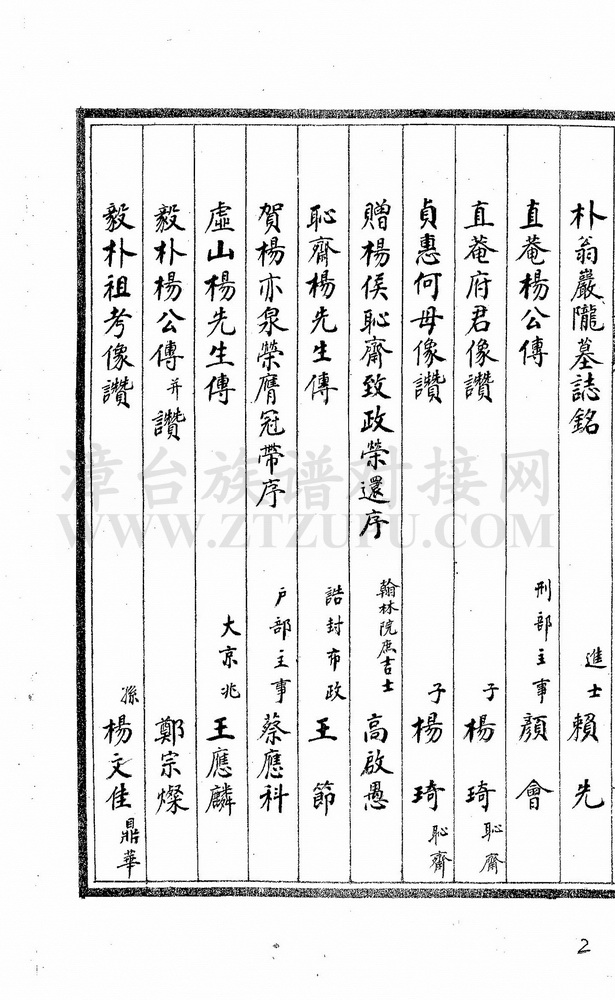 朴翁巖隴墓誌銘 進士 賴先
直菴楊公傳 刑部主事 顏會
直菴府君像讚 子 楊琦 恥齋
貞惠何母像讚 子 楊琦 恥齋
贈楊侯恥齋致政榮還序 翰林院庶吉士 高啟愚
恥齋楊先生傳 誥封布政 王節
賀楊亦泉榮膺冠帶序 戶部主事 蔡應科
虛山楊先生傳 大京兆 王應麟
毅朴楊公傳并讚 鄭宗燦
毅朴祖考像讚 孫 楊文佳 鼎華
2
漳台族谱对接网
WWW.ZTZUPU.COM